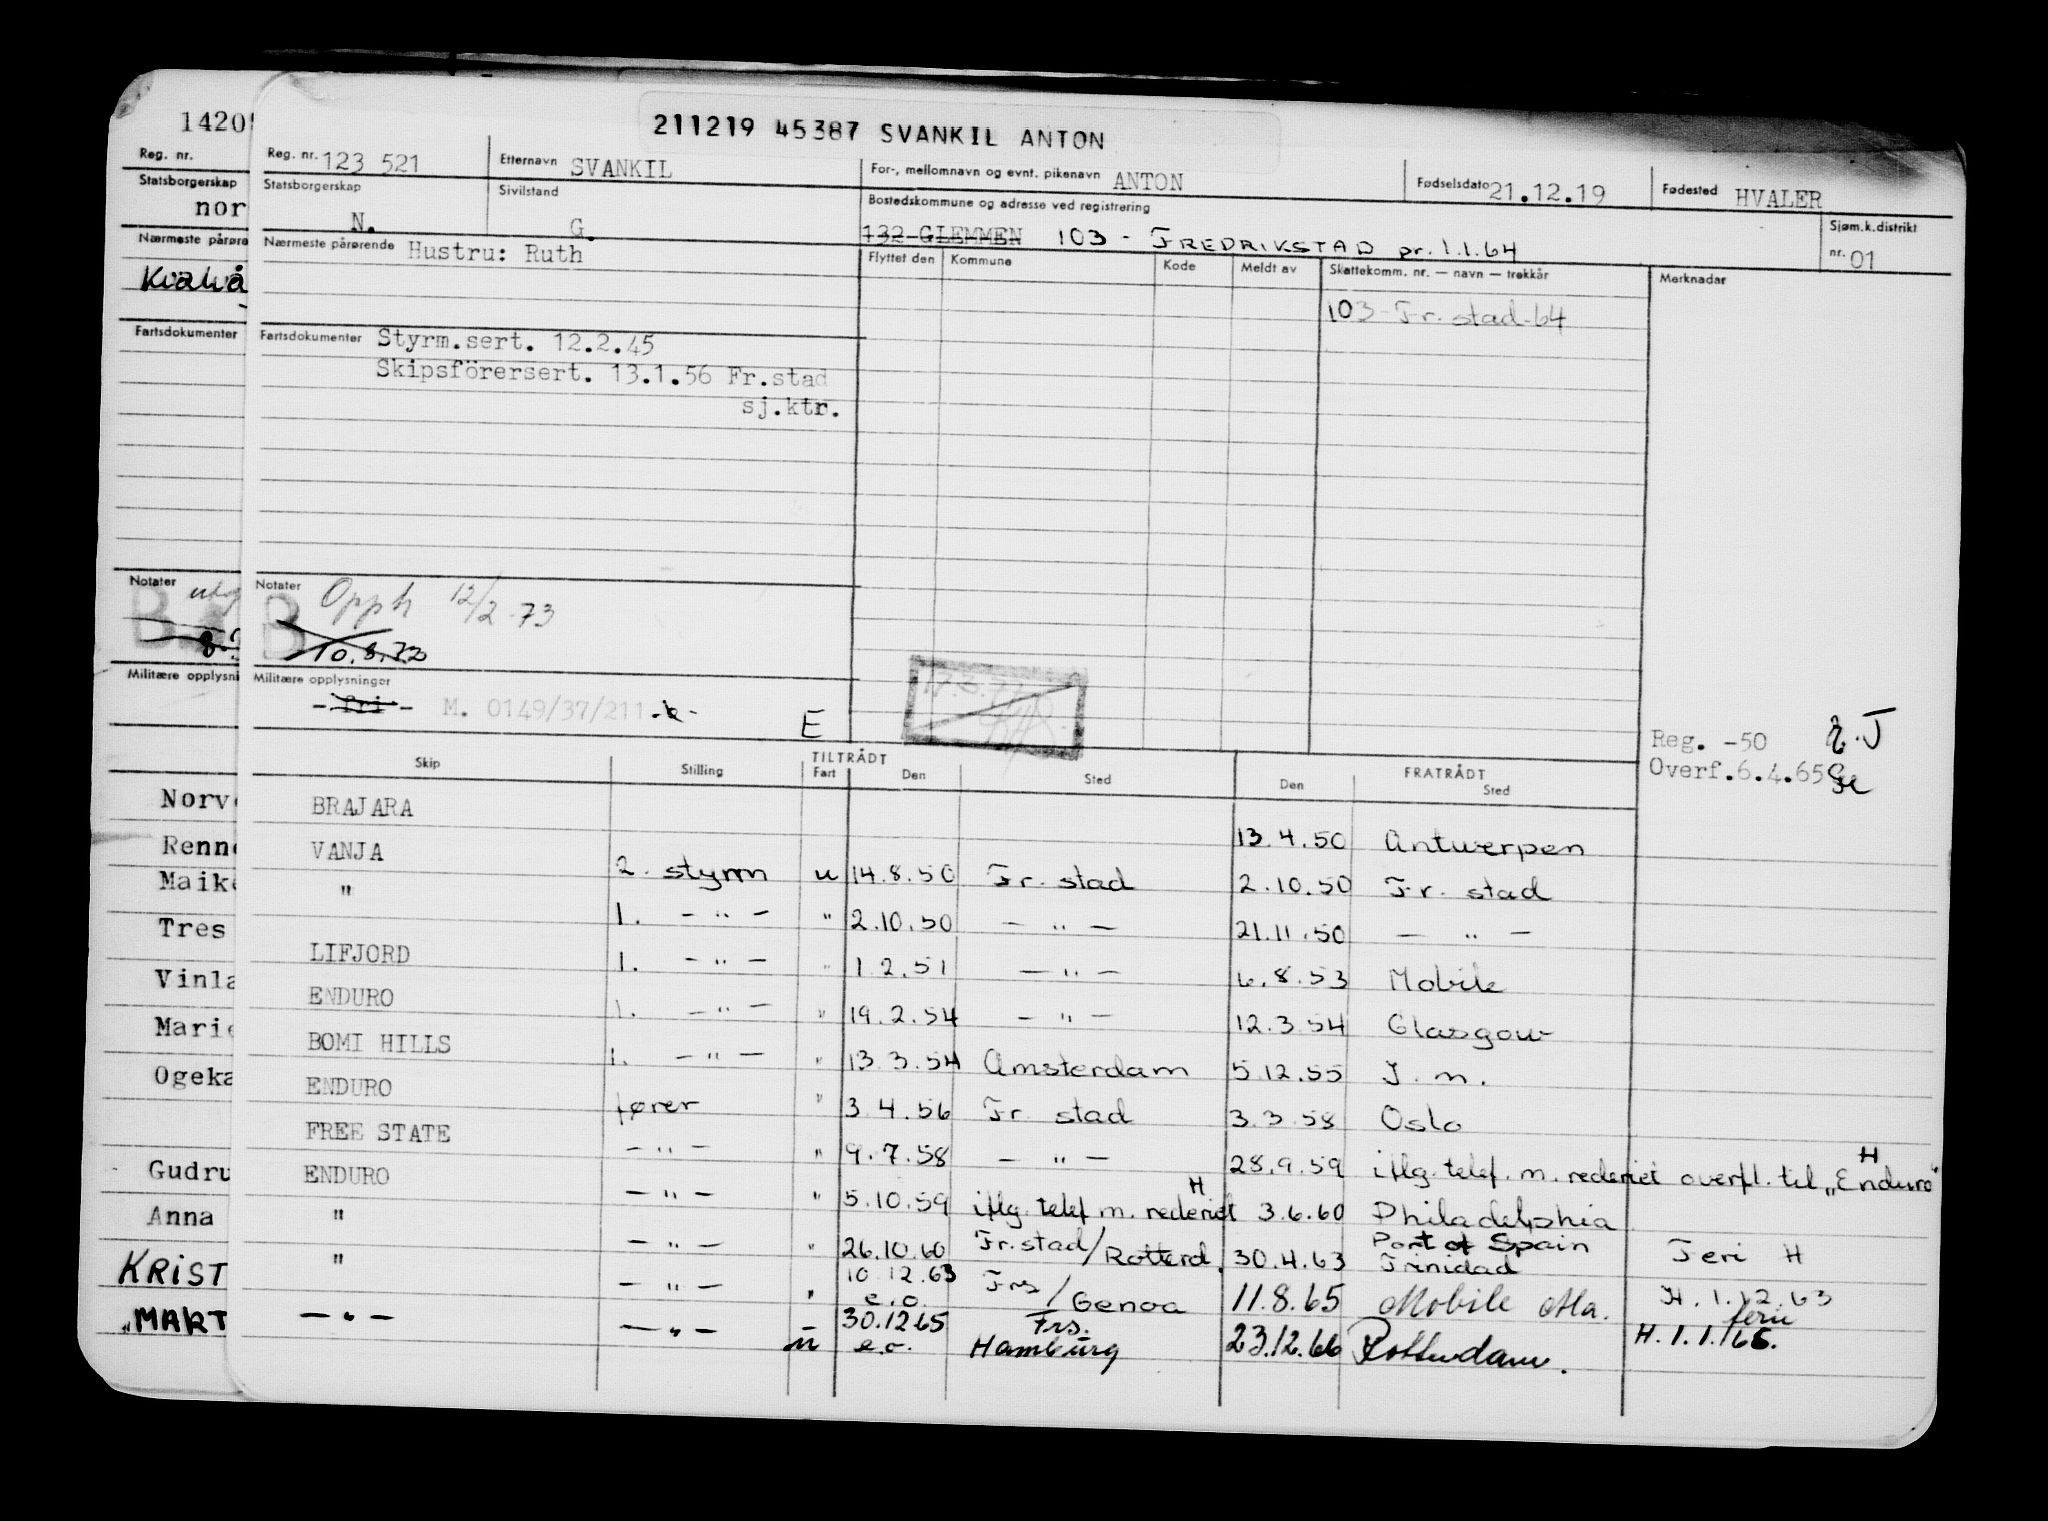 1420
211219 45387 SVANKIL ANTON
Reg. nr.
Statsborgerskap
nor
Nærmeste pårøre
Fartsdokumenter
Notater
Militære opplysni
Norv
Renn
Maik
Tres
Vinla
Marie
Ogeka
Gudru
Anna
KRIST
"MART
Reg. nr. 123 521 Etternavn SVANKIL For-, mellomnavn og evnt. pikenavn ANTON Fødselsdato 21.12.19 Fødested HVALER
Statsborgerskap N. Sivilstand G. Bostedskommune og adresse ved registrering
132 GLEMMEN 103 - FREDRIKSTAD pr. 1.1.64 Sjøm.k.distrikt nr. 01
Nærmeste pårørende Hustru: Ruth
Flyttet den Kommune Kode Meldt av Skattekomm. nr. — navn — trekkår Merknader
103 - Fr. stad - 64
Fartsdokumenter Styrm.sert. 12.2.45
Skipsförersert. 13.1.56 Fr.stad
sj.ktr.
Notater B Opph 12/2-73
10.8.72
Militære opplysninger
- fri - M. 0149/37/211 E
Reg. -50
Overf. 6.4.65
TILTRÅDT FRATRÅDT
Skip Stilling Fart Den Sted Den Sted
BRAJARA 13.4.50 Antwerpen
VANJA 2. styrm u 14.8.50 Fr. stad 2.10.50 Fr. stad
" 1. - " - " 2.10.50 - " - 21.11.50 - " -
LIFJORD 1. - " - " 1.2.51 - " - 6.8.53 Mobile
ENDURO 1. - " - " 19.2.54 - " - 12.3.54 Glasgow
BOMI HILLS 1. - " - " 13.3.54 Amsterdam 5.12.55 J. m.
ENDURO fører " 3.4.56 Fr. stad 3.3.58 Oslo
FREE STATE - " - " 9.7.58 - " - 28.9.59 iflg. telef. m. rederiet overfl. til „Enduro" H
ENDURO - " - " 5.10.59 iflg. telef m. rederiet H 3.6.60 Philadelphia
" - " - " 26.10.60 Fr.stad/Rotterd. 30.4.63 Port of Spain Trinidad Feri H
" - " - " 10.12.63 e.o. Frs/Genoa 11.8.65 Mobile Ala. H. 1.12.63
- " - - " - u 30.12.65 e.o. Frs. Hamburg 23.12.66 Rotterdam. ferie H. 1.1.166.